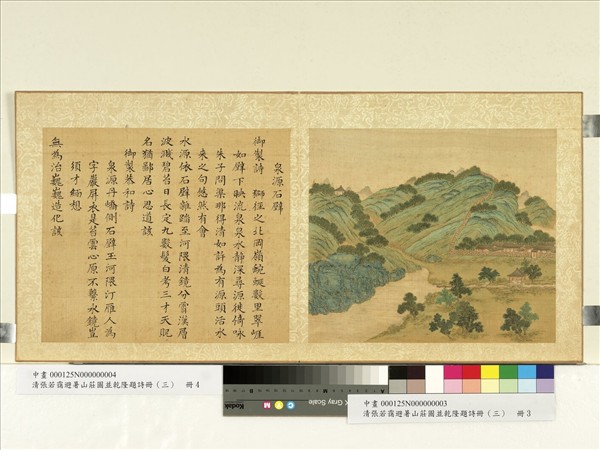 泉源石壁
御製詩 獅徑之北岡嶺蜿蜒數里翠崕
如壁下映流泉泉水靜深尋源徙倚咏
朱子問渠那得清如許為有源頭活水
來之句悠然有會
水源依石壁雜踏至河隈清鏡分霄漢層
波濺碧苔日長定九數髮白考三才天貺
名猶鄙居心思道該
御製恭和詩
泉源丹嶠側石壁玉河隈汀雁人為
字巖屏水是苔雲心原不繫水鏡豈
須才緬想
無為治巍巍造化該
中畫 000125N000000004
清張若靄避暑山莊圖並乾隆題詩冊（三） 冊4
Kodak
C M
Gray Scale
中畫 000125N000000003
清張若靄避暑山莊圖並乾隆題詩冊（三） 冊3